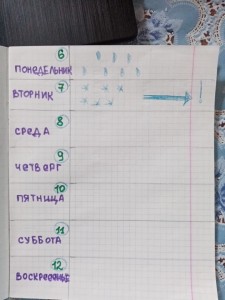 6
ПОНЕДЕЛЬНИК
7
ВТОРНИК
8
СРЕДА
9
ЧЕТВЕРГ
10
ПЯТНИЦА
11
СУББОТА
12
ВОСКРЕСЕНЬЕ